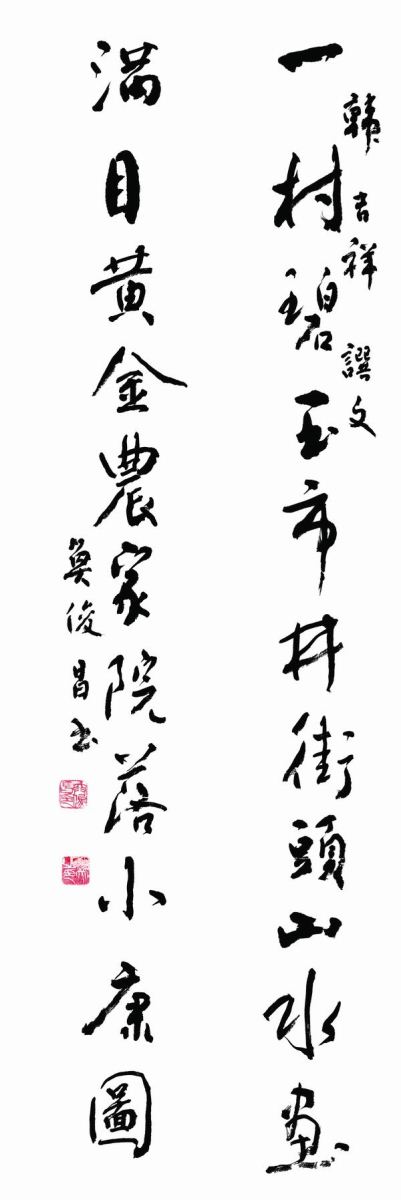 韓吉祥譔文
一村碧玉市井街頭山水畫
滿目黄金農家院落小康圖
俊昌书